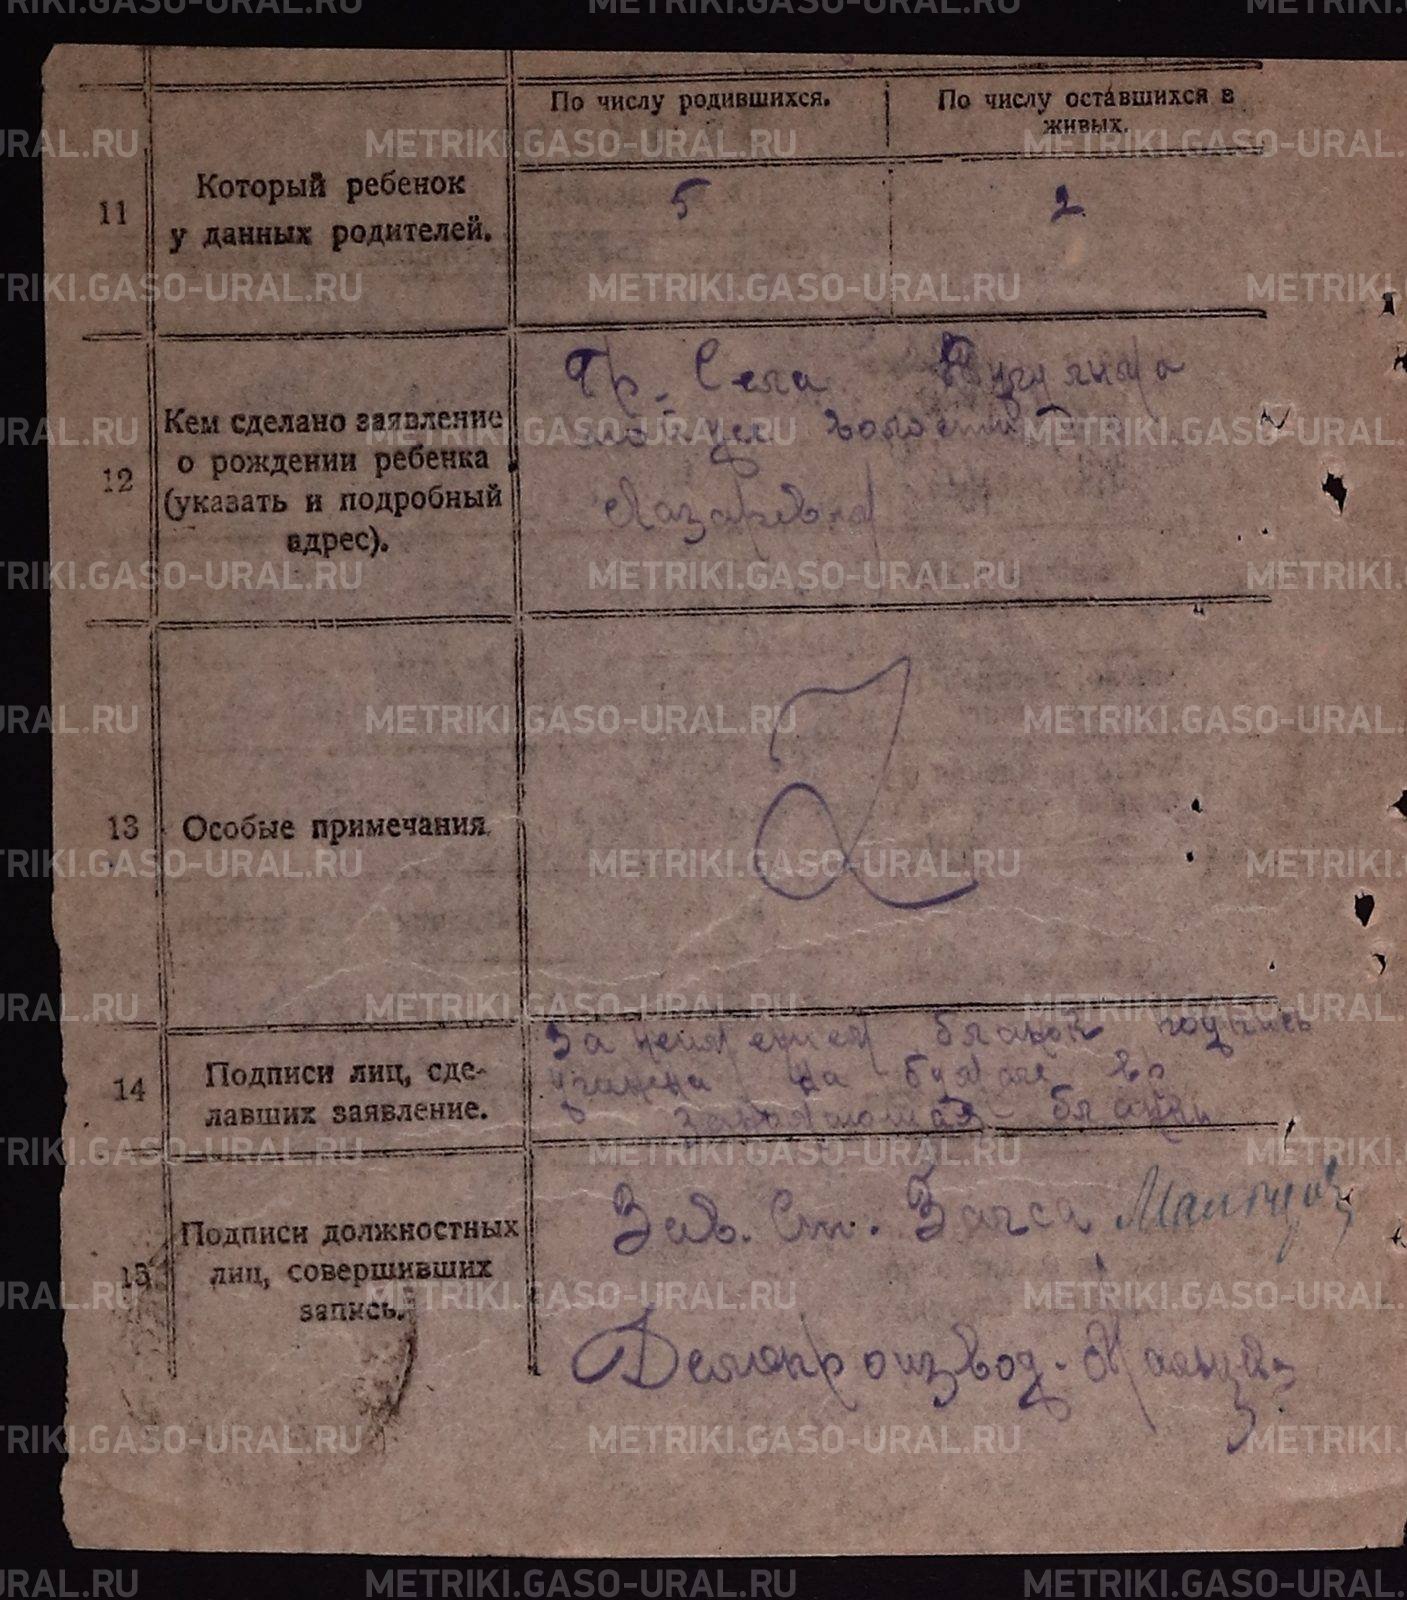 По числу родившихся.
По числу оставшихся в
живых.
11
Который ребенок
у данных родителей.
5
2
12
Кем сделано заявление
о рождении ребенка
(указать и подробный
адрес).
Гр. Села
волости
Лазаревна
13
Особые примечания.
14
Подписи лиц, сде-
лавших заявление.
За неимением бланок подпись
учинена на
бланки
15
Подписи должностных
лиц, совершивших
запись.
Зав. Ст. Загса Мальцов
Делопроизвод.
METRIKI.GASO-URAL.RU